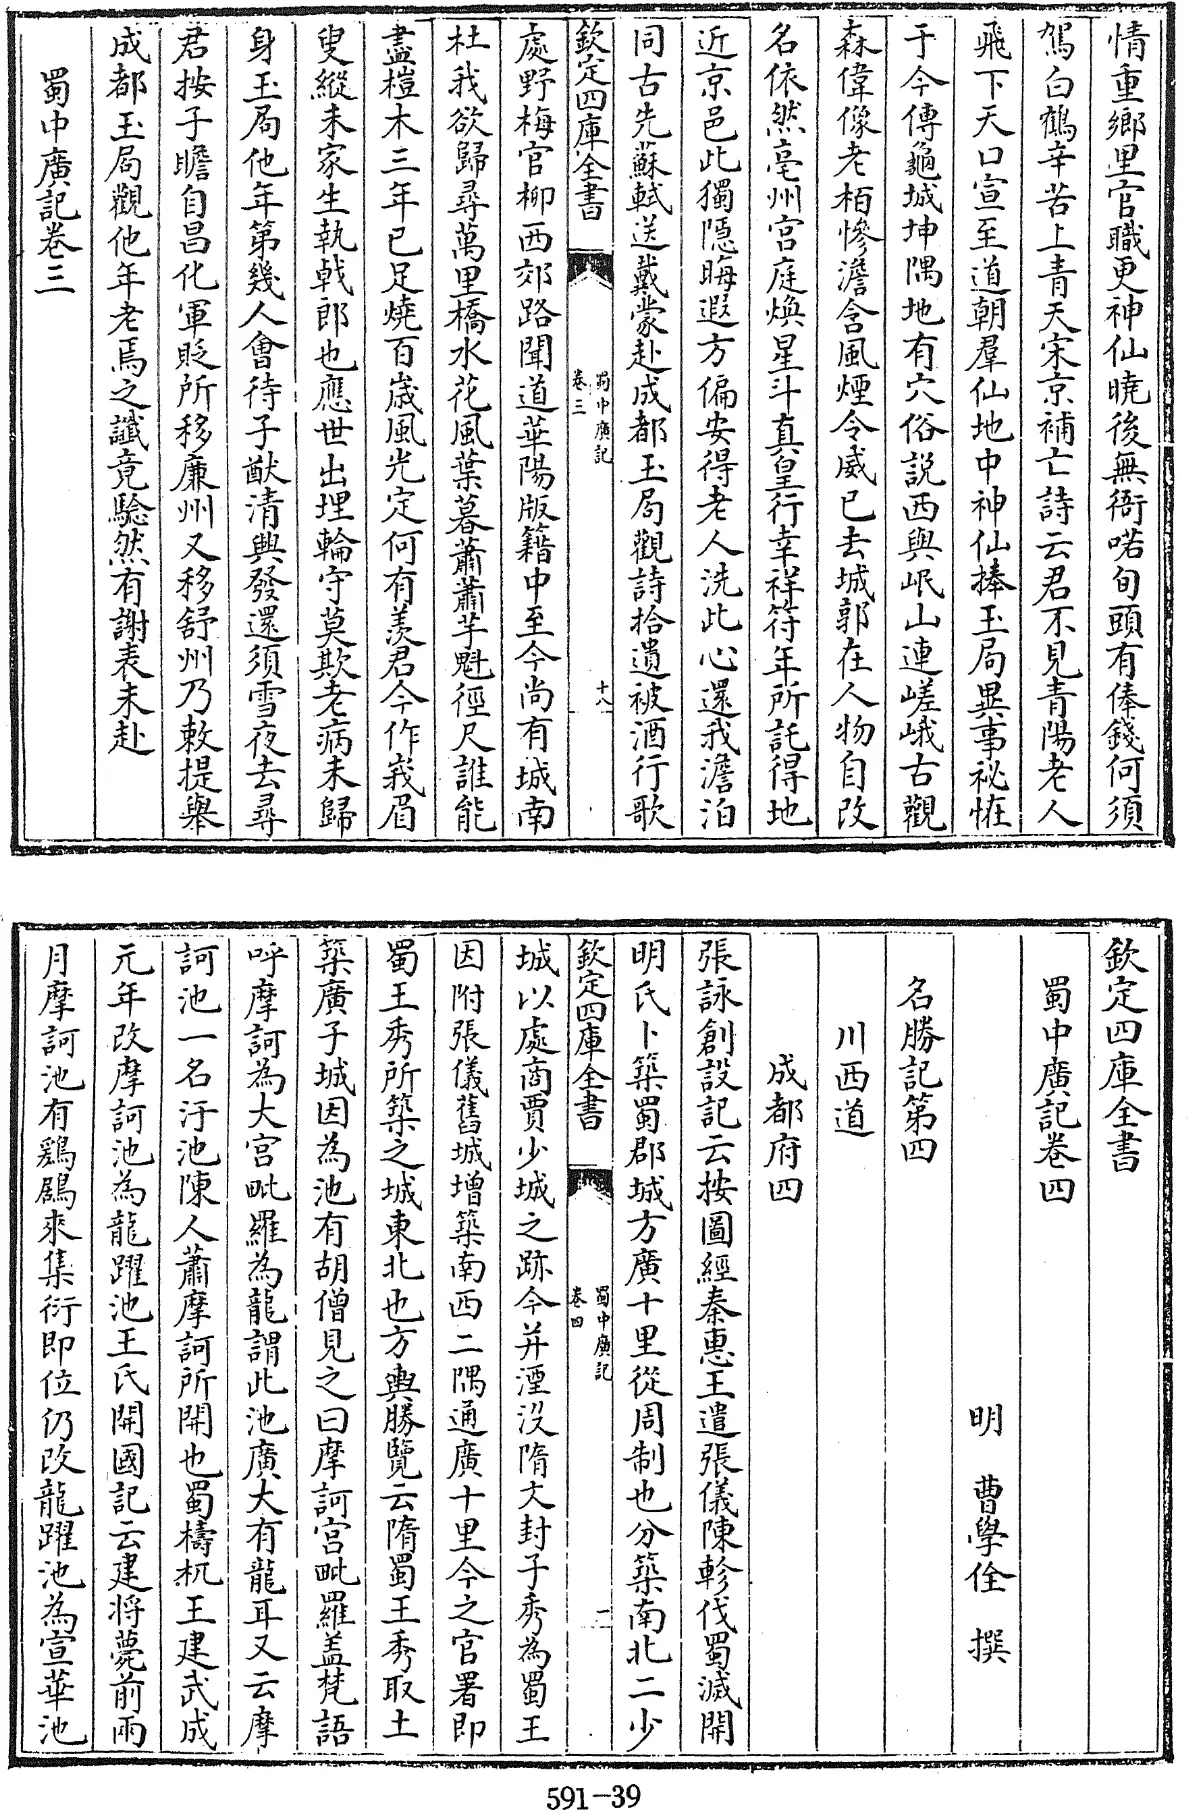 情重鄉里官職更神仙曉後無衙喏旬頭有俸錢何須
駕白鶴辛苦上青天宋京補亡詩云君不見青陽老人
飛下天口宣至道朝羣仙地中神仙捧玉局異事祕恠
于今傳龜城坤隅地有穴俗説西與岷山連嵯峨古觀
森偉像老栢慘澹含風煙令威已去城郭在人物自改
名依然亳州宫庭煥星斗真皇行幸祥符年所託得地
近京邑此獨隱晦遐方偏安得老人洗此心還我澹泊
同古先蘇軾送戴蒙赴成都玉局觀詩拾遺被酒行歌
欽定四庫全書
蜀中廣記
卷三
十八
處野梅官柳西郊路聞道華陽版籍中至今尚有城南
杜我欲歸尋萬里橋水花風葉暮蕭蕭芋魁徑尺誰能
盡榿木三年已足燒百歳風光定何有羨君今作峩眉
叟縱未家生執戟郎也應世出埋輪守莫欺老病未歸
身玉局他年第幾人會待子猷清興發還須雪夜去尋
君按子瞻自昌化軍貶所移廉州又移舒州乃敕提舉
成都玉局觀他年老焉之讖竟驗然有謝表未赴
蜀中廣記卷三
欽定四庫全書
蜀中廣記卷四
明　曹學佺　撰
名勝記第四
川西道
成都府四
張詠創設記云按圖經秦惠王遣張儀陳軫伐蜀滅開
明氏卜築蜀郡城方廣十里從周制也分築南北二少
欽定四庫全書
蜀中廣記
卷四
一
城以處商賈少城之跡今并湮沒隋文封子秀為蜀王
因附張儀舊城增築南西二隅通廣十里今之官署即
蜀王秀所築之城東北也方輿勝覽云隋蜀王秀取土
築廣子城因為池有胡僧見之曰摩訶宫毗羅盖梵語
呼摩訶為大宫毗羅為龍謂此池廣大有龍耳又云摩
訶池一名汙池陳人蕭摩訶所開也蜀檮杌王建武成
元年改摩訶池為龍躍池王氏開國記云建將薨前兩
月摩訶池有鷄鶋來集衍即位仍改龍躍池為宣華池
591-39